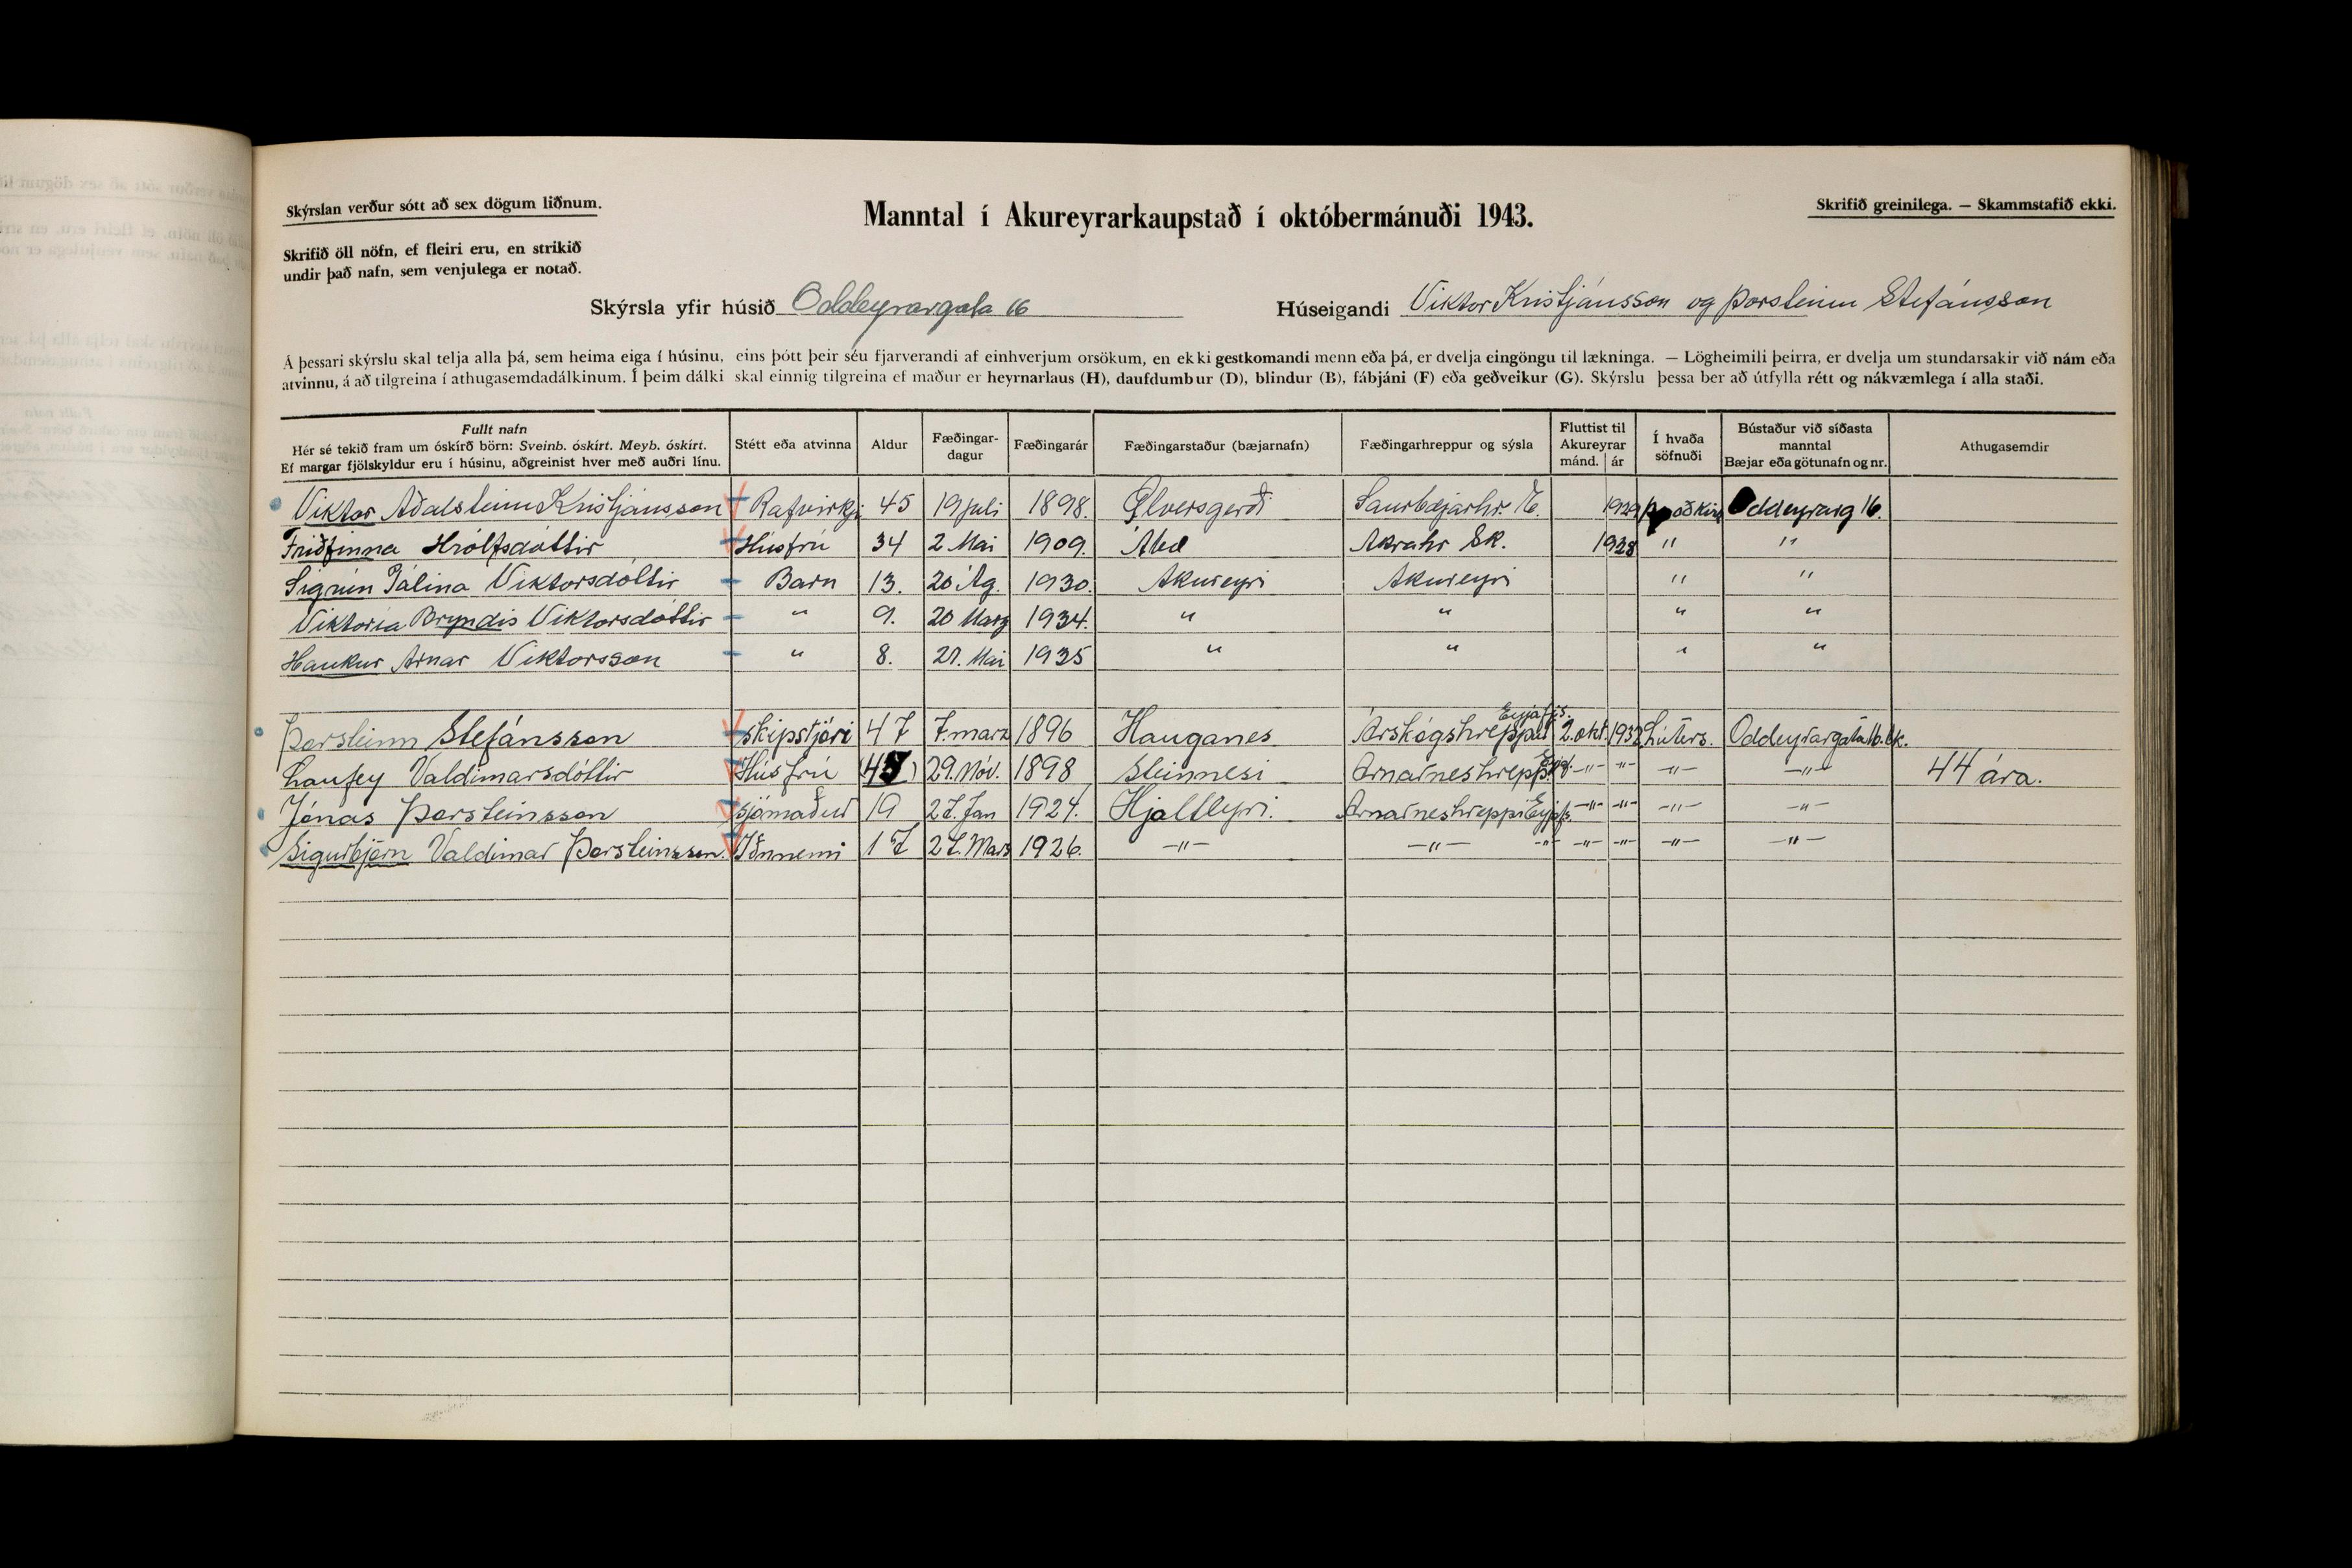 Skýrslan verður sótt að sex dögum liðnum.
Manntal í Akureyrarkaupstað í októbermánuði 1943.
Skrifið greinilega. — Skammstafið ekki.
Skrifið öll nöfn, ef fleiri eru, en strikið
undir það nafn, sem venjulega er notað.
Skýrsla yfir húsið Oddeyrargata 16
Húseigandi Viktor Kristjánsson og Þorsteinn Stefánsson
Á þessari skýrslu skal telja alla þá, sem heima eiga í húsinu, eins þótt þeir séu fjarverandi af einhverjum orsökum, en ekki gestkomandi menn eða þá, er dvelja eingöngu til lækninga. — Lögheimili þeirra, er dvelja um stundarsakir við nám eða
atvinnu, á að tilgreina í athugasemdadálkinum. Í þeim dálki skal einnig tilgreina ef maður er heyrnarlaus (H), daufdumbur (D), blindur (B), fábjáni (F) eða geðveikur (G). Skýrslu þessa ber að útfylla rétt og nákvæmlega í alla staði.
Fullt nafn
Hér sé tekið fram um óskírð börn: Sveinb. óskírt. Meyb. óskírt.
Ef margar fjölskyldur eru í húsinu, aðgreinist hver með auðri línu.
Stétt eða atvinna
Aldur
Fæðingar-
dagur
Fæðingarár
Fæðingarstaður (bæjarnafn)
Fæðingarhreppur og sýsla
Fluttist til
Akureyrar
mánd. ár
Í hvaða
söfnuði
Bústaður við síðasta
manntal
Bæjar eða götunafn og nr.
Athugasemdir
Viktor Aðalsteinn Kristjánsson Rafvirkji 45 19 júli 1898. Ölversgerði Saurbæjarhr. E. 1929 Þjóðkirk Oddeyrarg 16.
Friðfinna Hrólfsdóttir Húsfrú 34 2 Mai 1909. Ábæ Akrahr Sk. 1928 " "
Sigrún Pálina Viktorsdóttir Barn 13. 20 Ág. 1930. Akureyri Akureyri " "
Viktoria Bryndis Viktorsdóttir " 9. 20 Marz 1934. " " " "
Haukur Arnar Viktorsson " 8. 21. Mai 1935 " " " "
Þorsteinn Stefánsson skipstjóri 47 7. marz 1896 Hauganes Árskógshreppur Eyjafjs. 2. okt. 1932 Lúters. Oddeyrargata 16. Ak.
Laufey Valdimarsdóttir Húsfrú (45) 29. Nóv. 1898 Steinnesi Arnarneshrepp. -"- -"- -"- -"- 44 ára.
Jónas Þorsteinsson sjómaður 19 27. Jan 1924. Hjalteyri. Arnarneshreppi Eyjafs. -"- -"- -"- -"-
Sigurbjörn Valdimar Þorsteinsson. Iðnnemi 17 27. Mars 1926. -"- -"- -"- -"- -"- -"- -"-